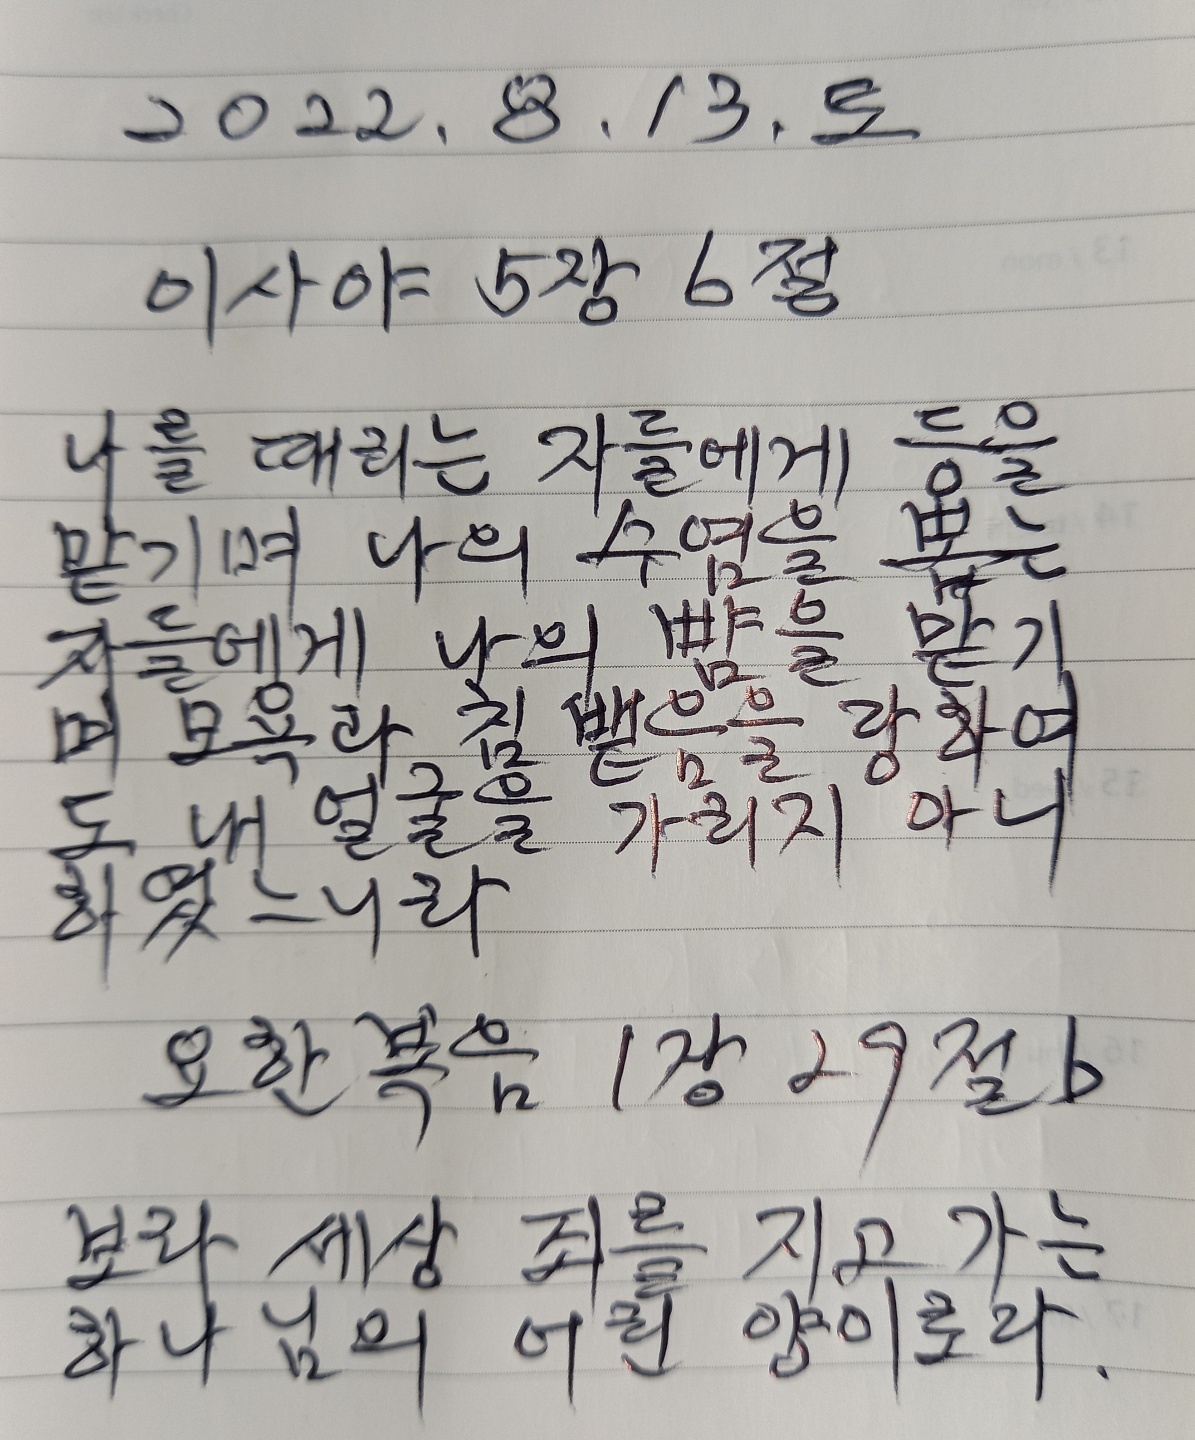 2022. 8. 13. 토
이사야 5장 6절
나를 때리는 자들에게 등을
맡기며 나의 수염을 뽑는
자들에게 나의 뺨을 맡기
며 모욕과 침 뱉음을 당하여
도 내 얼굴을 가리지 아니
하였느니라
요한복음 1장 29절b
보라 세상 죄를 지고 가는
하나님의 어린 양이로라.